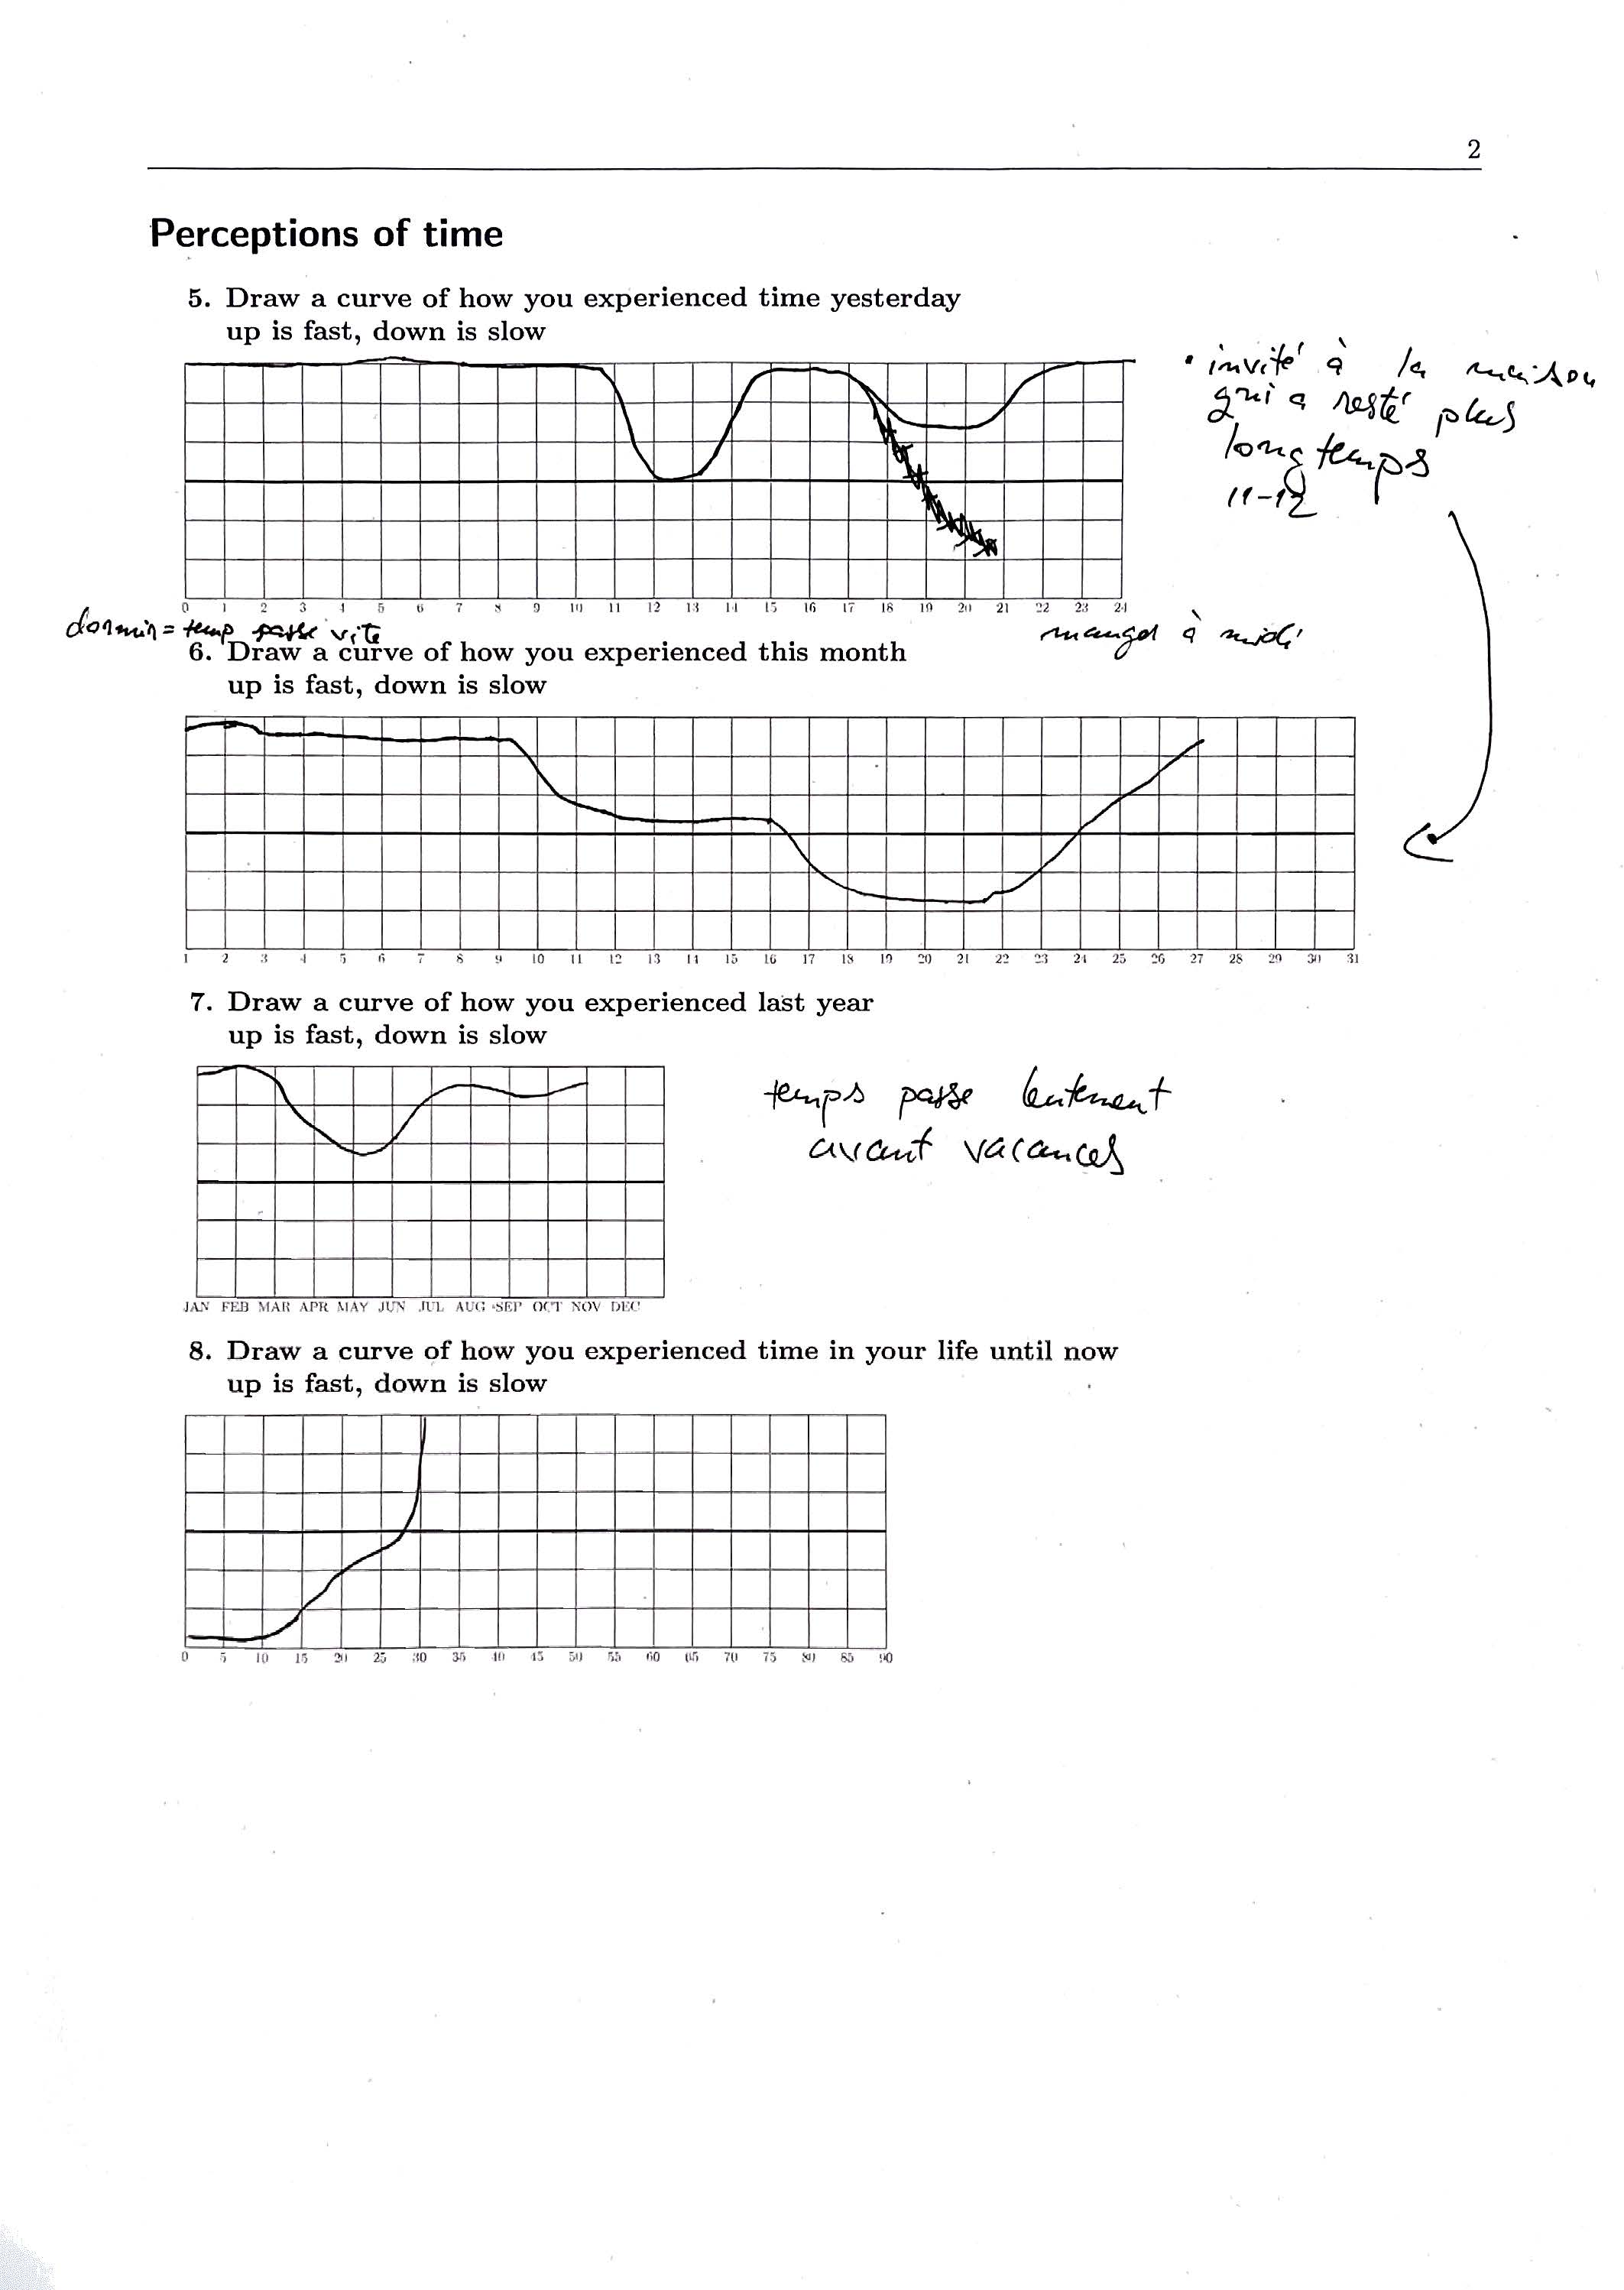 2
Perceptions of time
5. Draw a curve of how you experienced time yesterday
up is fast, down is slow
• invité à la maison
qui a resté plus
longtemps
11-12
0 1 2 3 4 5 6 7 8 9 10 11 12 13 14 15 16 17 18 19 20 21 22 23 24
dormir = temp passe vite
manger à midi
6. Draw a curve of how you experienced this month
up is fast, down is slow
1 2 3 4 5 6 7 8 9 10 11 12 13 14 15 16 17 18 19 20 21 22 23 24 25 26 27 28 29 30 31
7. Draw a curve of how you experienced last year
up is fast, down is slow
temps passe lentement
avant vacances
JAN FEB MAR APR MAY JUN JUL AUG SEP OCT NOV DEC
8. Draw a curve of how you experienced time in your life until now
up is fast, down is slow
0 5 10 15 20 25 30 35 40 45 50 55 60 65 70 75 80 85 90